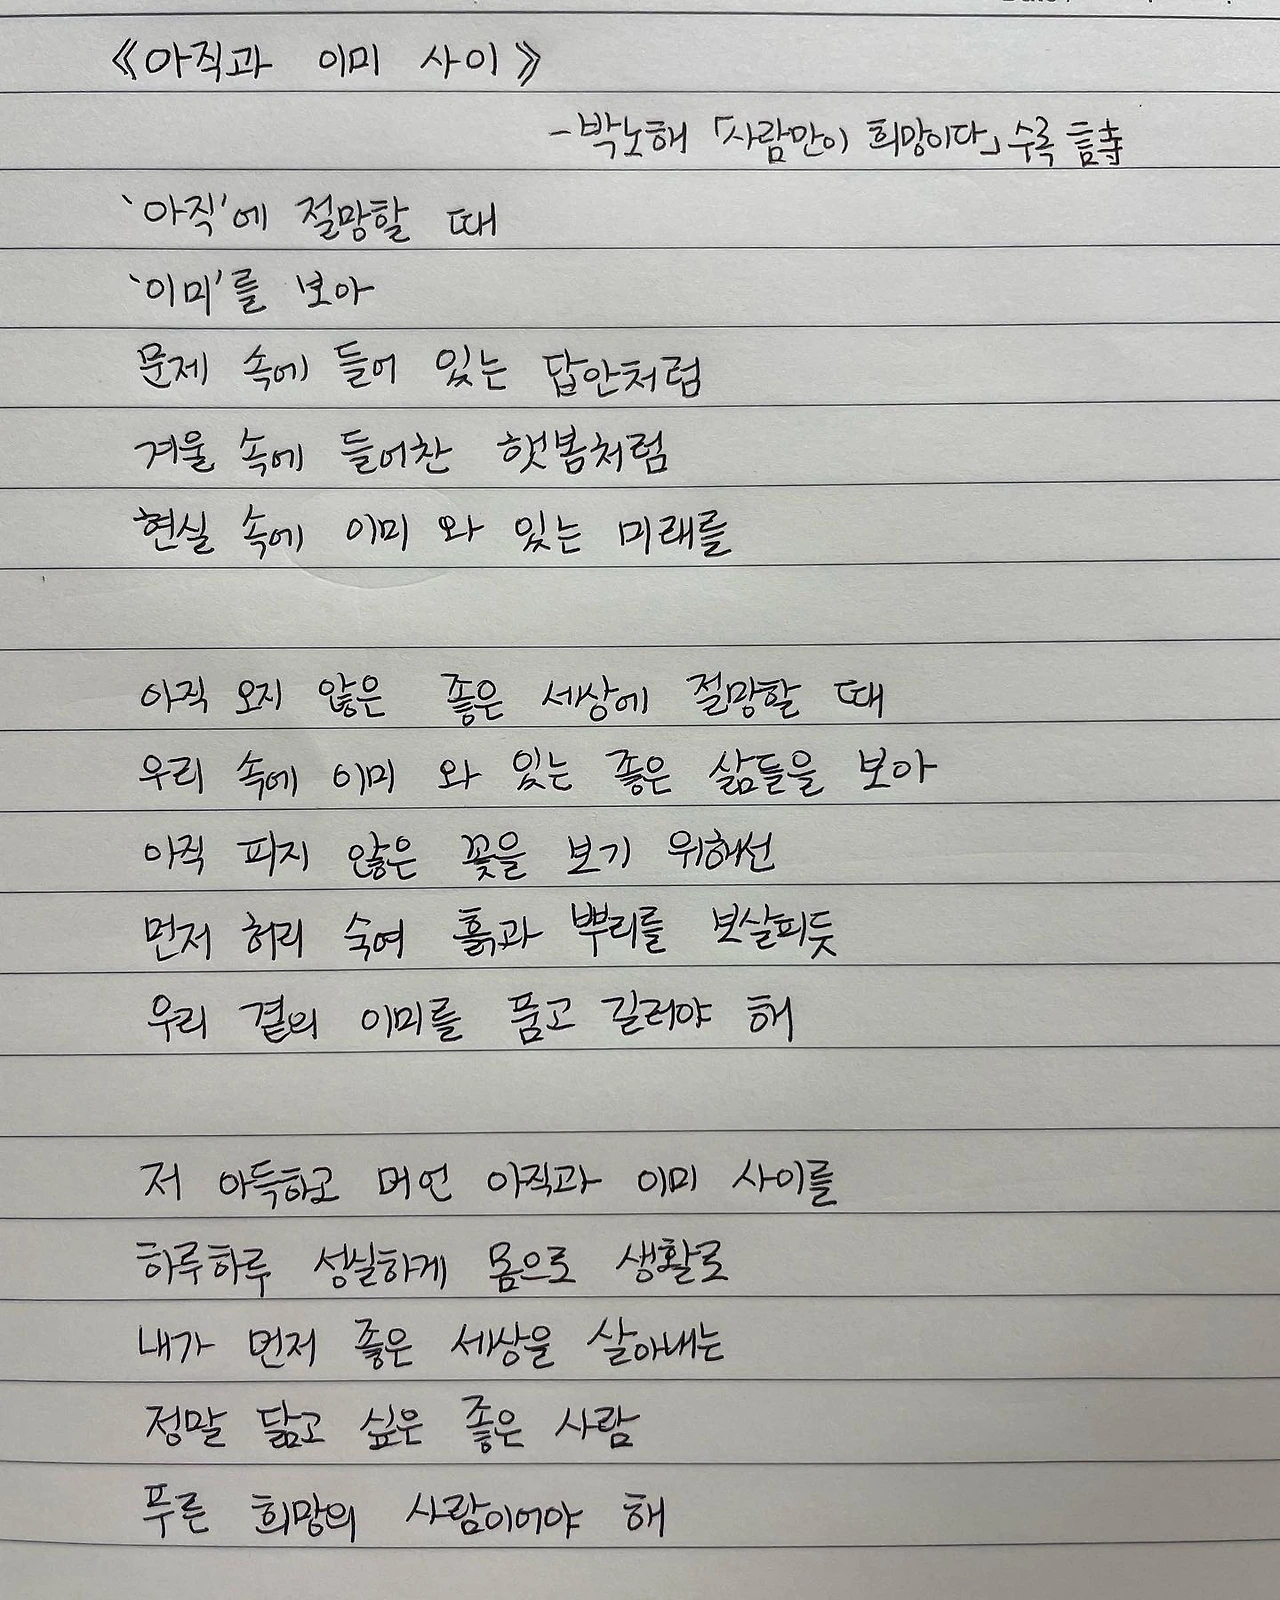 《아직과 이미 사이》
-박노해 「사람만이 희망이다」수록 詩
'아직'에 절망할 때
'이미'를 보아
문제 속에 들어 있는 답안처럼
겨울 속에 들어찬 햇봄처럼
현실 속에 이미 와 있는 미래를
아직 오지 않은 좋은 세상에 절망할 때
우리 속에 이미 와 있는 좋은 삶들을 보아
아직 피지 않은 꽃을 보기 위해선
먼저 허리 숙여 흙과 뿌리를 보살피듯
우리 곁의 이미를 품고 길러야 해
저 아득하고 머언 아직과 이미 사이를
하루하루 성실하게 몸으로 생활로
내가 먼저 좋은 세상을 살아내는
정말 닮고 싶은 좋은 사람
푸른 희망의 사람이어야 해